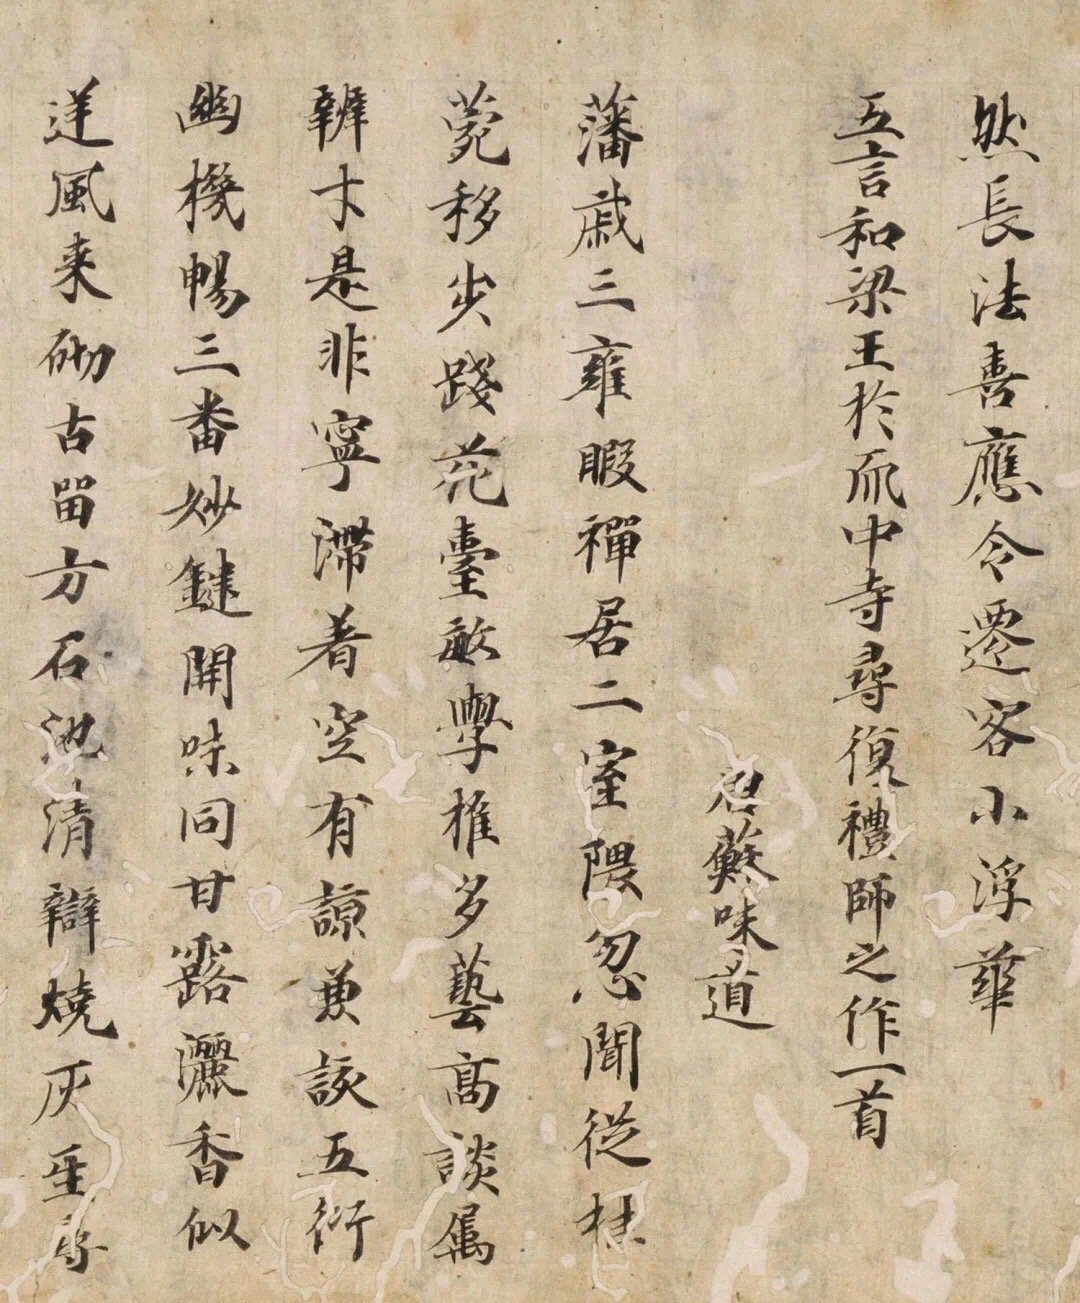 然長法善應令遷客小浮華
五言和梁王於爪中寺尋復禮師之作一首
蘇味道
藩戚三雍暇禪居二室隈忽聞從桂
菀移步踐花臺敏學推多藝高談属
辨才是非寧滯着空有諒兼該五衍
幽機暢三番妙鍵開味同甘露灑香似
逆風来砌古留方石池清辯燒灰